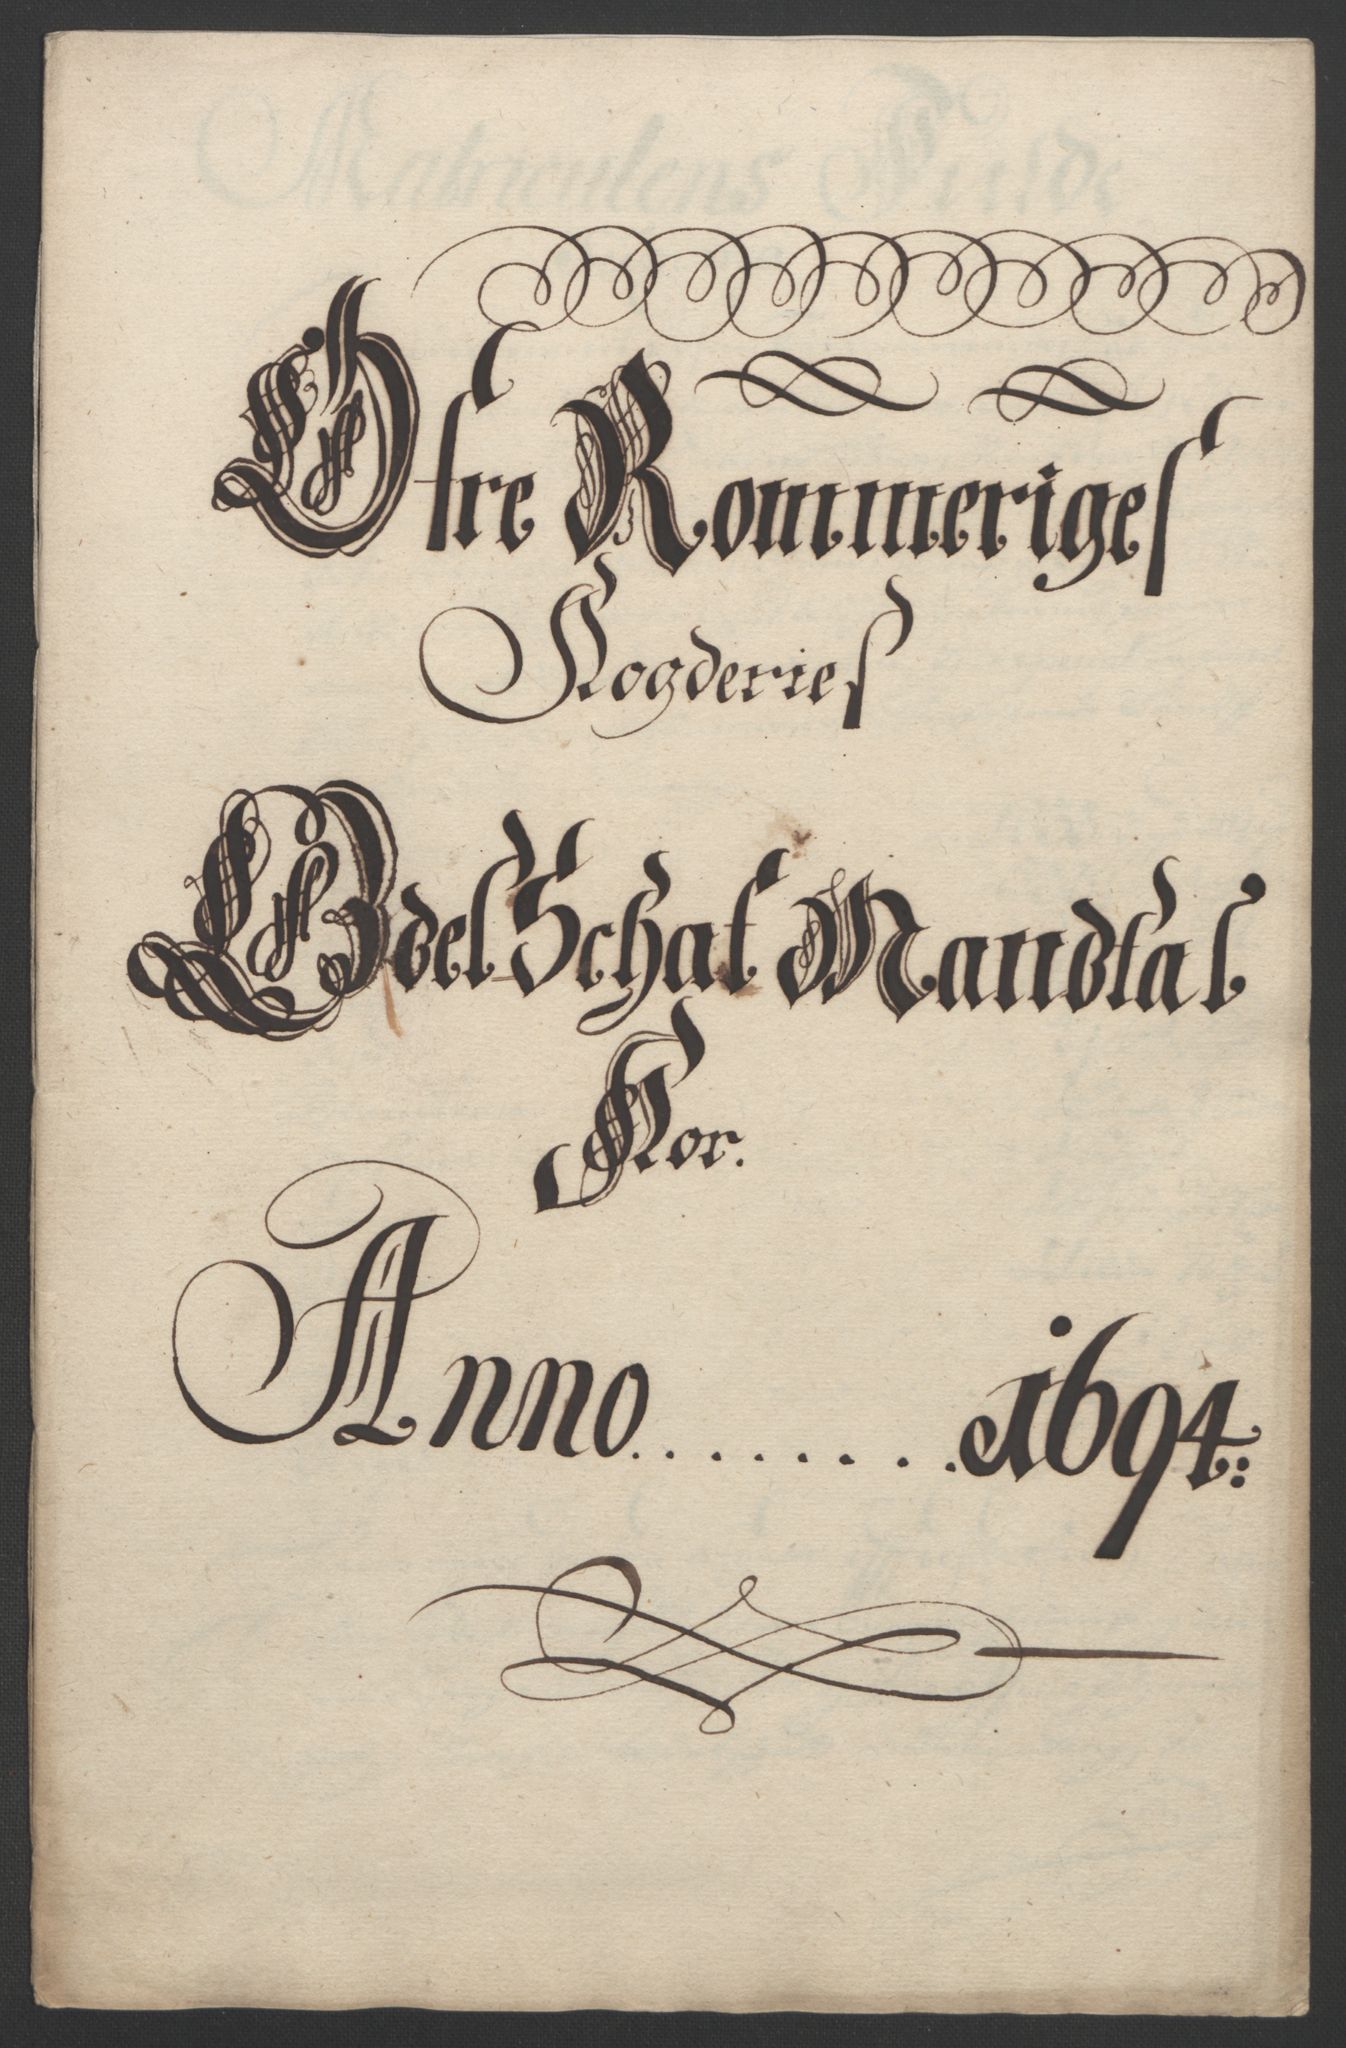 Øfre Rommeriges
Fogderies
Odel Schat Mandtal
For.
Anno......... 1694: